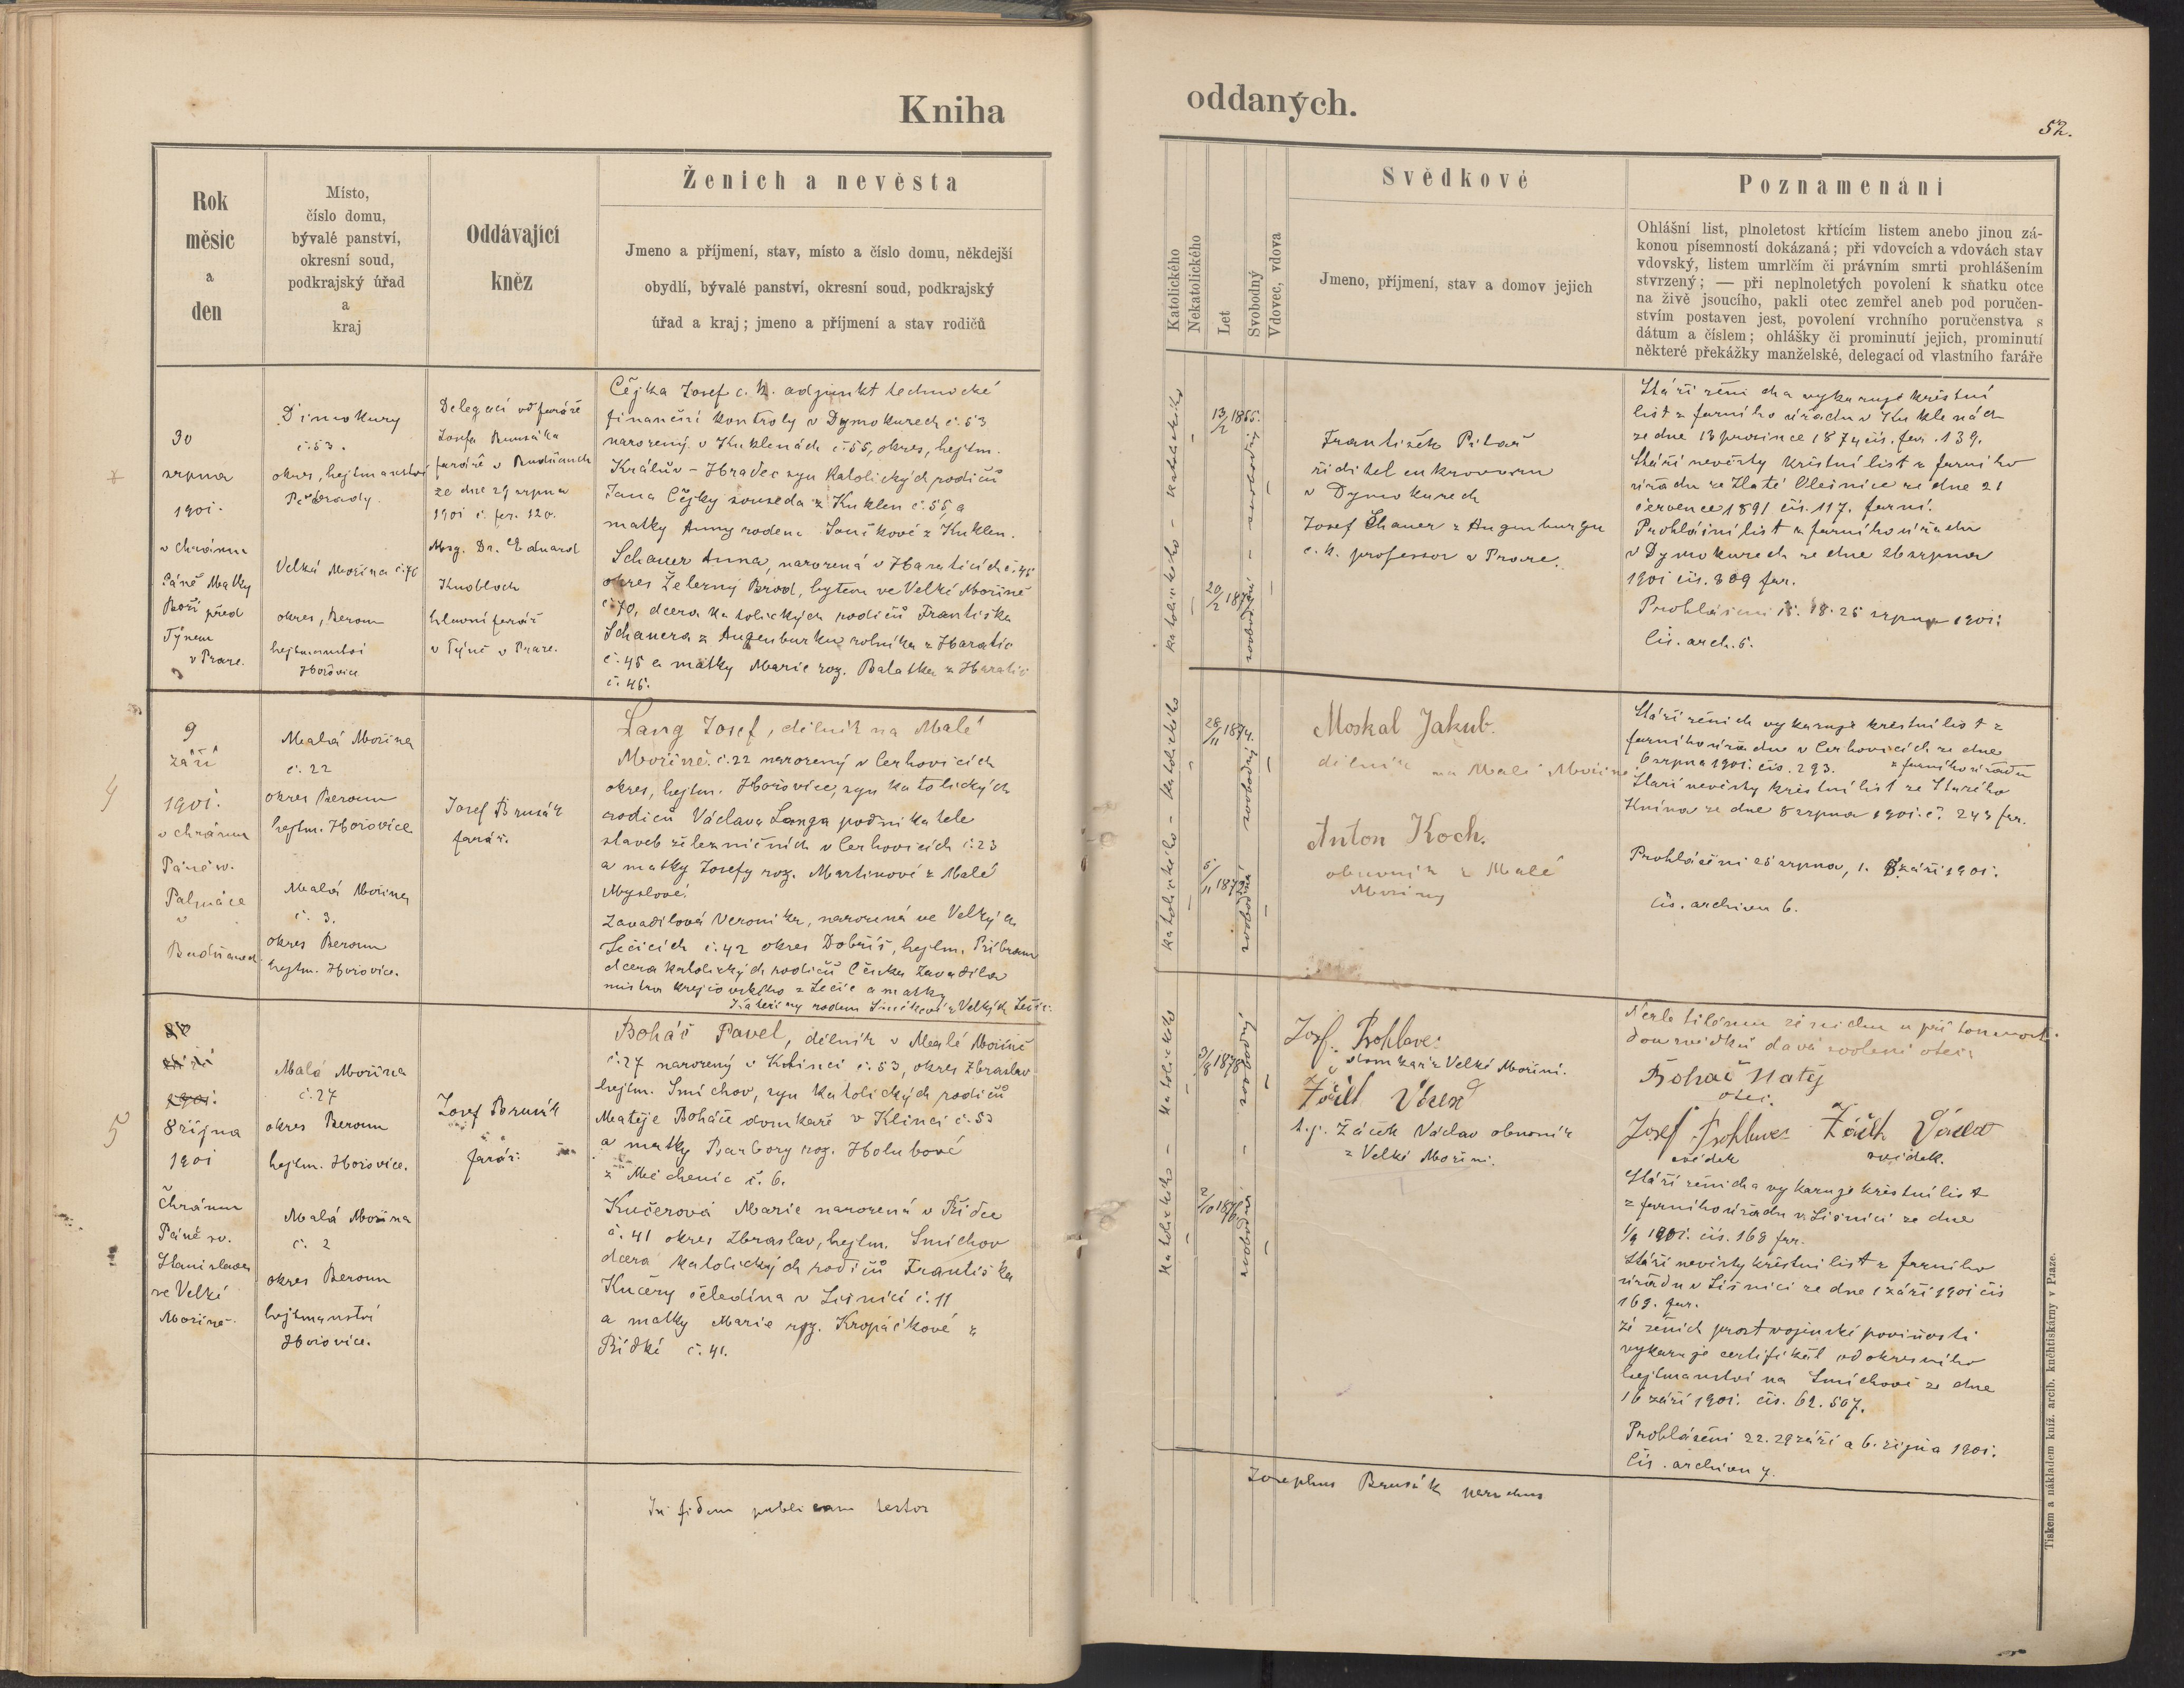 Kniha
oddaných.
52.
Rok
měsíc
a
den
Místo,
číslo domu,
bývalé panství,
okresní soud,
podkrajský úřad
a
kraj
Oddávající
kněz
Ženich a nevěsta
Jmeno a příjmení, stav, místo a číslo domu, někdejší
obydlí, bývalé panství, okresní soud, podkrajský
úřad a kraj; jmeno a příjmení a stav rodičů
Katolického
Nekatolického
Let
Svobodný
Vdovec, vdova
Svědkové
Jmeno, příjmení, stav a domov jejich
Poznamenání
Ohlášní list, plnoletost křtícím listem anebo jinou zá-
konou písemností dokázaná; při vdovcích a vdovách stav
vdovský, listem umrlčím či právním smrti prohlášením
stvrzený; — při neplnoletých povolení k sňatku otce
na živě jsoucího, pakli otec zemřel aneb pod poručen-
stvím postaven jest, povolení vrchního poručenstva s
dátum a číslem; ohlášky či prominutí jejich, prominutí
některé překážky manželské, delegací od vlastního faráře
30
srpna
1901.
v chrámu
Páně Matky
Boží před
Týnem
v Praze.
Dimokury
č. 53.
okres, hejtmanství
Poděbrady.
Velká Mořina č. 70
okres, Beroun
hejtmanství
Hořovice
Delegací od faráře
Josefa Brusáka
faráře v Budňanech
ze dne 29 srpna
1901 č. far. 120.
Msg. Dr. Eduard
Knobloch
hlavní farář
v Týně v Praze.
Čejka Josef c. k. adjunkt technické
finanční kontroly v Dymokurech č. 53
narozený v Kuklenách č. 55, okres, hejtm.
Králův-Hradec syn katolických rodičů
Jana Čejky souseda z Kuklen č. 55, a
matky Anny rodem z Kuklen.
Schauer Anna, narozená v Haraticích č. 45
okres Železný Brod, bytem ve Velké Mořině
č. 70, dcera katolických rodičů Františka
Schauera z Augenburku rolníka z Haratic
č. 45 a matky Marie roz. Balatka z Haratic
č. 45.
katolického - katolického
13/2 1855.
20/2 1879
svobodný
svobodná
František Pilař
ředitel cukrovaru
v Dymokurech
Josef Schauer z Augenburgu
c. k. professor v Praze.
Stáří ženicha vykazuje křestní
list z farního úřadu v Kuklenách
ze dne 13 prosince 1874 čís. far. 139.
Stáří nevěsty křestní list z farního
úřadu ze Zlaté Olešnice ze dne 21
července 1891 čís. 117. farní.
Prohlášní list z farního úřadu
v Dymokurech ze dne 26 srpna
1901 čís. 309 far.
Prohlášení 15. 18. 25 srpna 1901.
Čís. arch. 5.
4
9
září
1901.
v chrámu
Páně sv.
Palmácie
v
Budňanech
Malá Mořina
č. 22
okres Beroun
hejtm. Hořovice
Malá Mořina
č. 3.
okres Beroun
hejtm. Hořovice.
Josef Brusák
farář.
Lang Josef, dělník na Malé
Mořině č. 22 narozený v Cerhovicích
okres, hejtm. Hořovice, syn katolických
rodičů Václava Langa podnikatele
staveb železničních v Cerhovicích č. 23
a matky Josefy roz. Martinové z Malé
Myslové.
Zavadilová Veronika, narozená ve Velkých
Lečicích č. 42 okres Dobříš, hejtm. Příbram
dcera katolických rodičů Čeňka Zavadila
mistra krejčovského z Lečic a matky
Kateřiny rodem z Velkých Lečic.
katolického - katolického
28/11 1874.
5/11 1879
svobodný
svobodná
Moskal Jakub.
dělník na Malé Mořině
Anton Koch.
obuvník z Malé
Mořiny
Stáří ženicha vykazuje křestní list z
farního úřadu v Cerhovicích ze dne
6 srpna 1901. čís. 293.
z farního úřadu
Stáří nevěsty křestní list ze Starého
Knína ze dne 8 srpna 1901. č. 243 far.
Prohlášení 25 srpna, 1. 8 září 1901.
čís. archivu 6.
5
1901.
8 října
1901
Chrám
Páně sv.
Stanislava
ve Velké
Mořině.
Malá Mořina
č. 27
okres Beroun
hejtm. Hořovice.
Malá Mořina
č. 2
okres Beroun
hejtmanství
Hořovice.
Josef Brusák
farář.
Boháč Pavel, dělník v Malé Mořině
č. 27 narozený v Klínci č. 53, okres Zbraslav
hejtm. Smíchov, syn katolických rodičů
Matěje Boháče domkaře v Klínci č. 53
a matky Barbory roz. Holubové
z Měchenic č. 6.
Kučerová Marie narozená v Řídce
č. 41 okres Zbraslav, hejtm. Smíchov
dcera katolických rodičů Františka
Kučery čeledína v Lišnici č. 11
a matky Marie roz. Kropáčkové z
Řídké č. 41.
katolického - katolického
3/8 1878
2/10 1876
svobodný
svobodná
Josef
domkař z Velké Mořiny.
Žáček Václav
t. j. Žáček Václav obuvník
z Velké Mořiny.
Nezletilému ženichu u přítomnosti
dou svědků dává svolení otec:
Bohač Matěj
otec.
Josef
Žáček Václav
svědek
svědek.
Stáří ženicha vykazuje křestní list
z farního úřadu v Lišnici ze dne
1/9 1901. čís. 168 far.
Stáří nevěsty křestní list z farního
úřadu v Lišnici ze dne 1 září 1901 čís
169. far.
že ženich prost vojenské povinosti
vykazuje certifikát od okresního
hejtmanství na Smíchově ze dne
16 září 1901. čís. 62.567.
Prohlášení 22. 29 září a 6. října 1901.
Čís. archivu 7.
In fidem publicam testor
Josephus Brusák parochus
Tiskem a nákladem kníž. arcib. kněhtiskárny v Praze.